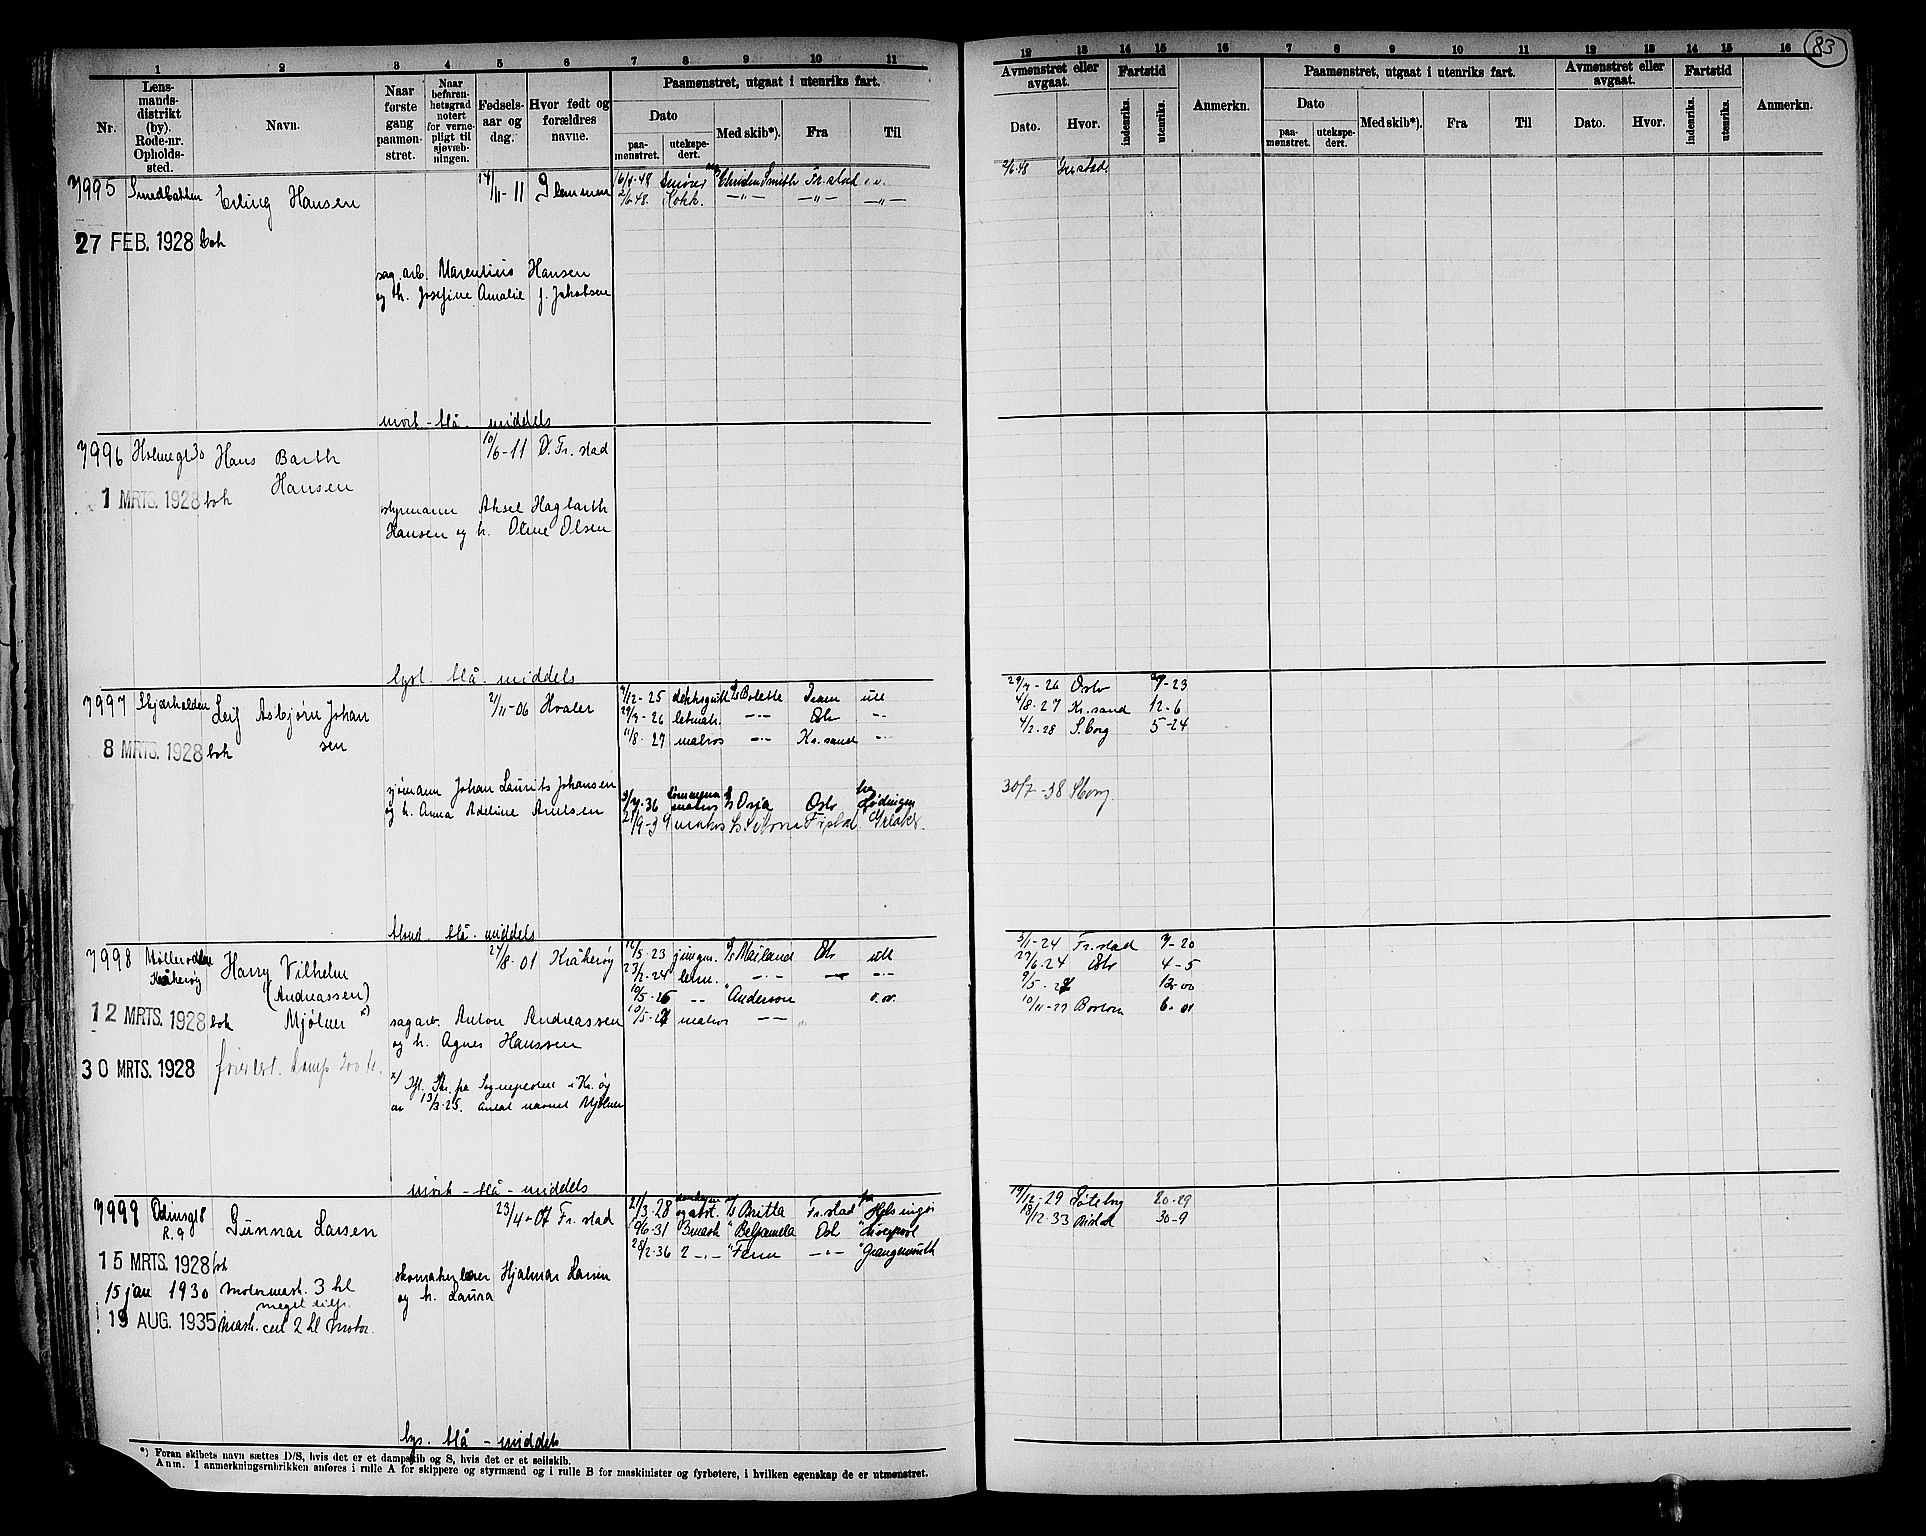 83
1 2 3 4 5 6 7 8 9 10 11
Nr.
Lens-
mands-
distrikt
(by).
Rode-nr.
Opholds-
sted.
Navn.
Naar
første
gang
paamøn-
stret.
Naar
befaren-
hetsgrad
notert
for verne-
pligt til
sjøvæb-
ningen.
Fødsels-
aar og
dag.
Hvor født og
forældres
navne.
Paamønstret, utgaat i utenriks fart.
Dato
paa-
mønstret.
utekspe-
dert.
Med skib*).
Fra
Til
7995 Smedbakken Erling Hansen 14/11-11 Glemmen 16/4-48 Smører Christen Smith Fr.stad
2/6 48. Kokk. —"— —"— —"—
27 FEB. 1928 boh
sag.arb. Marentius Hansen
og h. Josefine Amalie f. Jakobsen
mørk - blå. middels
7996 Holmegt 30 Hans Barth 10/6-11 Ø. Fr. stad
Hansen
1 MRTS. 1928 boh
styrmann Aksel Hagbarth
Hansen og h. Oline Olsen
lys. blå. middels
7997 Skjærhalden Leif Asbjørn Johan 2/11-06 Hvaler 9/12-25 dekksgutt Bolette ute
sen 29/7-26 letmatr. —"— Oslo —"—
8 MRTS. 1928 boh 11/8-27 matros —"— Kr.sand —"—
sjømann Johan Laurits Johansen
og h. Anna Adeline Arntsen
matros Osia Oslo Lødingen
21/9-39 matros
blond. blå. middels
7998 Kråkerøy Harry Vilhelm 24/8-01 Kråkerøy 16/5-23 jungm. Mailand Oslo ute
(Andreassen) 23/2-24 —"— —"—
Mjølner x) 10/5-26 —"— Anderson
12 MRTS. 1928 boh 10/5-27 matros —"—
sagarb. Anton Andreassen
og h. Agnes Hanssen
30 MRTS. 1928
x) Ifl. Skr. fra Sognepresten i Kr.øy
av 13/3-25. antat navnet Mjølner
mørk - blå - middels
7999 Odinsgt 8 Gunnar Larsen 23/4-07 Fr. stad 21/3-28 Britta Fr.stad Helsingør
R. 9 10/6-31 3 mask " Belpamela Oslo " Liverpool
28/2-36 2 —"— " Fern —"— " Grangemouth
15 MRTS. 1928 boh
skomaker Hjalmar Larsen
og h. Laura
15 jan 1930 Motormask. 3 kl
meget tilfr.
19 AUG. 1935 Mask. cert 2 kl motor.
lys. blå - middels
*) Foran skibets navn sættes D/S, hvis det er et dampskib og S, hvis det er et seilskib.
Anm. I anmerkningsrubrikken anføres i rulle A for skippere og styrmænd og i rulle B for maskinister og fyrbøtere, i hvilken egenskap de er utmønstret.
12 13 14 15 16 7 8 9 10 11 12 13 14 15 16
Avmønstret eller
avgaat.
Dato. Hvor.
Fartstid
indenriks. utenriks.
Anmerkn.
Paamønstret, utgaat i utenriks fart.
Dato
paa-
mønstret.
utekspe-
dert.
Med skib*).
Fra
Til
Avmønstret eller
avgaat.
Dato. Hvor.
Fartstid
indenriks. utenriks.
Anmerkn.
2/6 48
29/7-26 Oslo 7-23
4/8-27 Kr.sand 12-6
4/2-28 S.borg 5-24
30/7-38 S.borg
3/1-24 Fr.stad 7-20
27/6-24 Oslo 4-5
10/11-27 Boston 6-01
19/12-29 Gøteborg 20-29
18/12-33 30-9